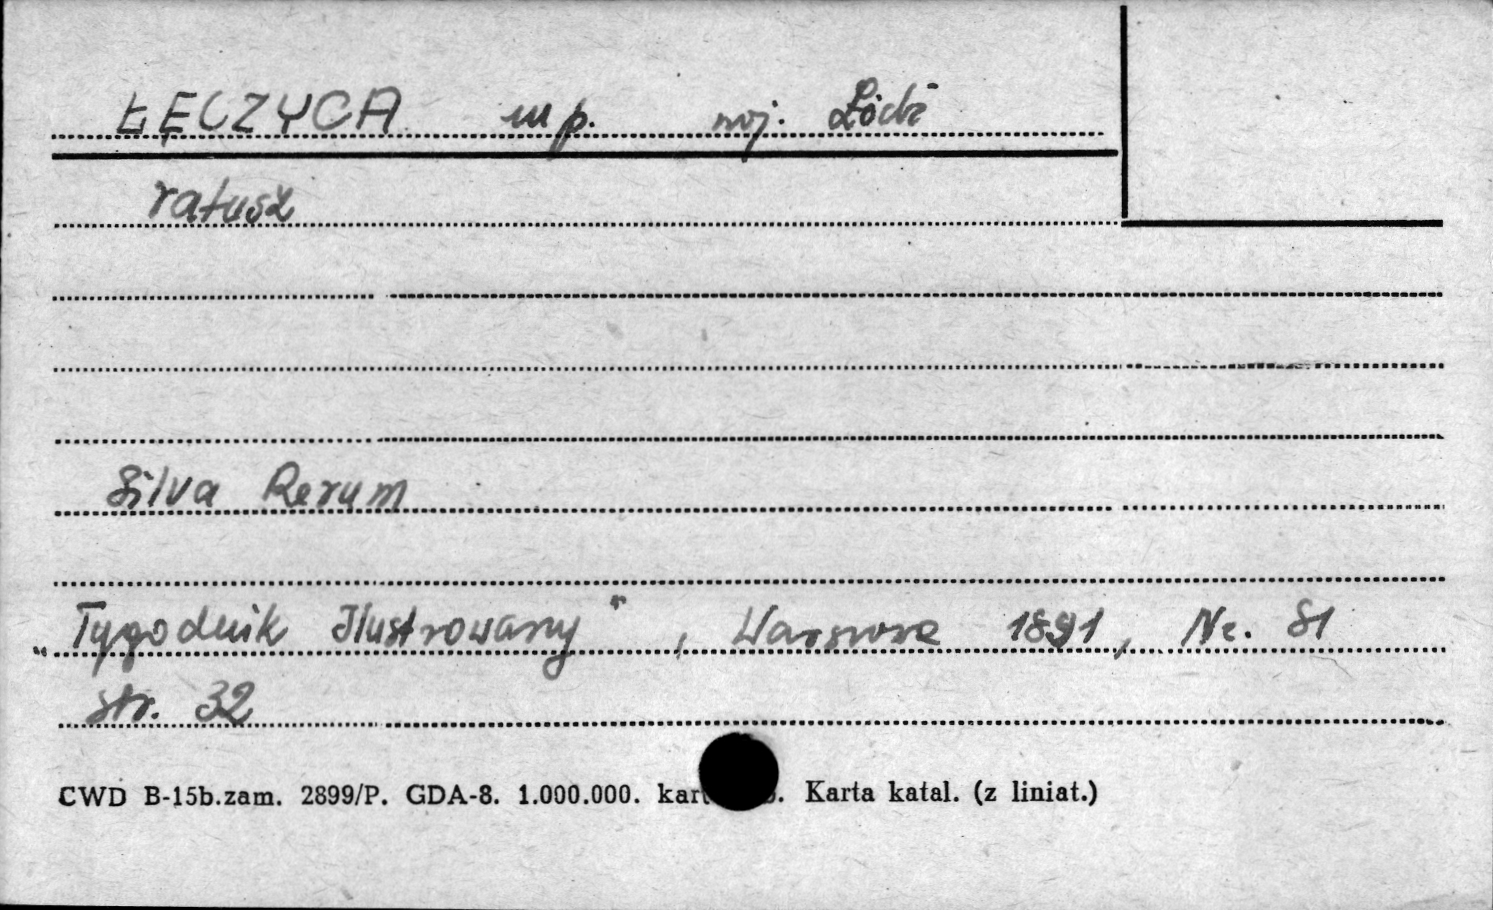 ŁĘCZYCA m p. woj. Łódź
ratusz
Silva Rerum
„Tygodnik Ilustrowany", Warszawa 1891, Nr. 81
str. 32
CWD B-15b.zam. 2899/P. GDA-8. 1.000.000. kart Karta katal. (z liniat.)